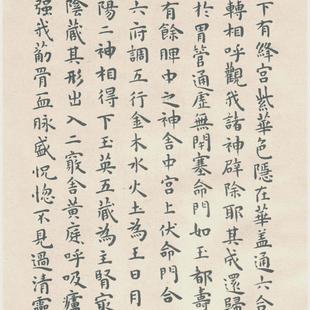 下有絳宮紫華色隱在華蓋通六合
轉相呼觀我諸神辟除耶其成還歸
於胃管通虛無閉塞命門如玉都壽
有餘脾中之神舍中宮上伏命門合
六府調五行金木水火土為王日月
陽二神相得下玉英五藏為主腎最
陰藏其形出入二竅舍黃庭呼吸廬
强我筋骨血脉盛怳惚不見過清靈